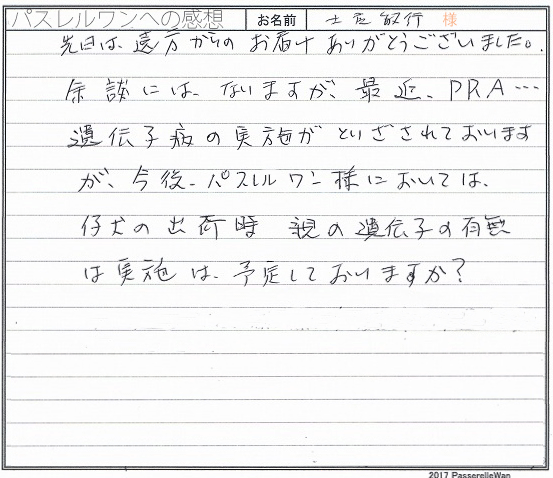 パスレルワンへの感想 お名前 土屋敏行 様
先日は、遠方からの お届け ありがとうございました。
余談には、ないますが、最近、PRA…
遺伝子病の実施が といざされておいます
が、今後、パスレルワン様においては、
仔犬の出荷時 親の遺伝子の有無
は実施は、予定しておいますか?
2017 PasserelleWan